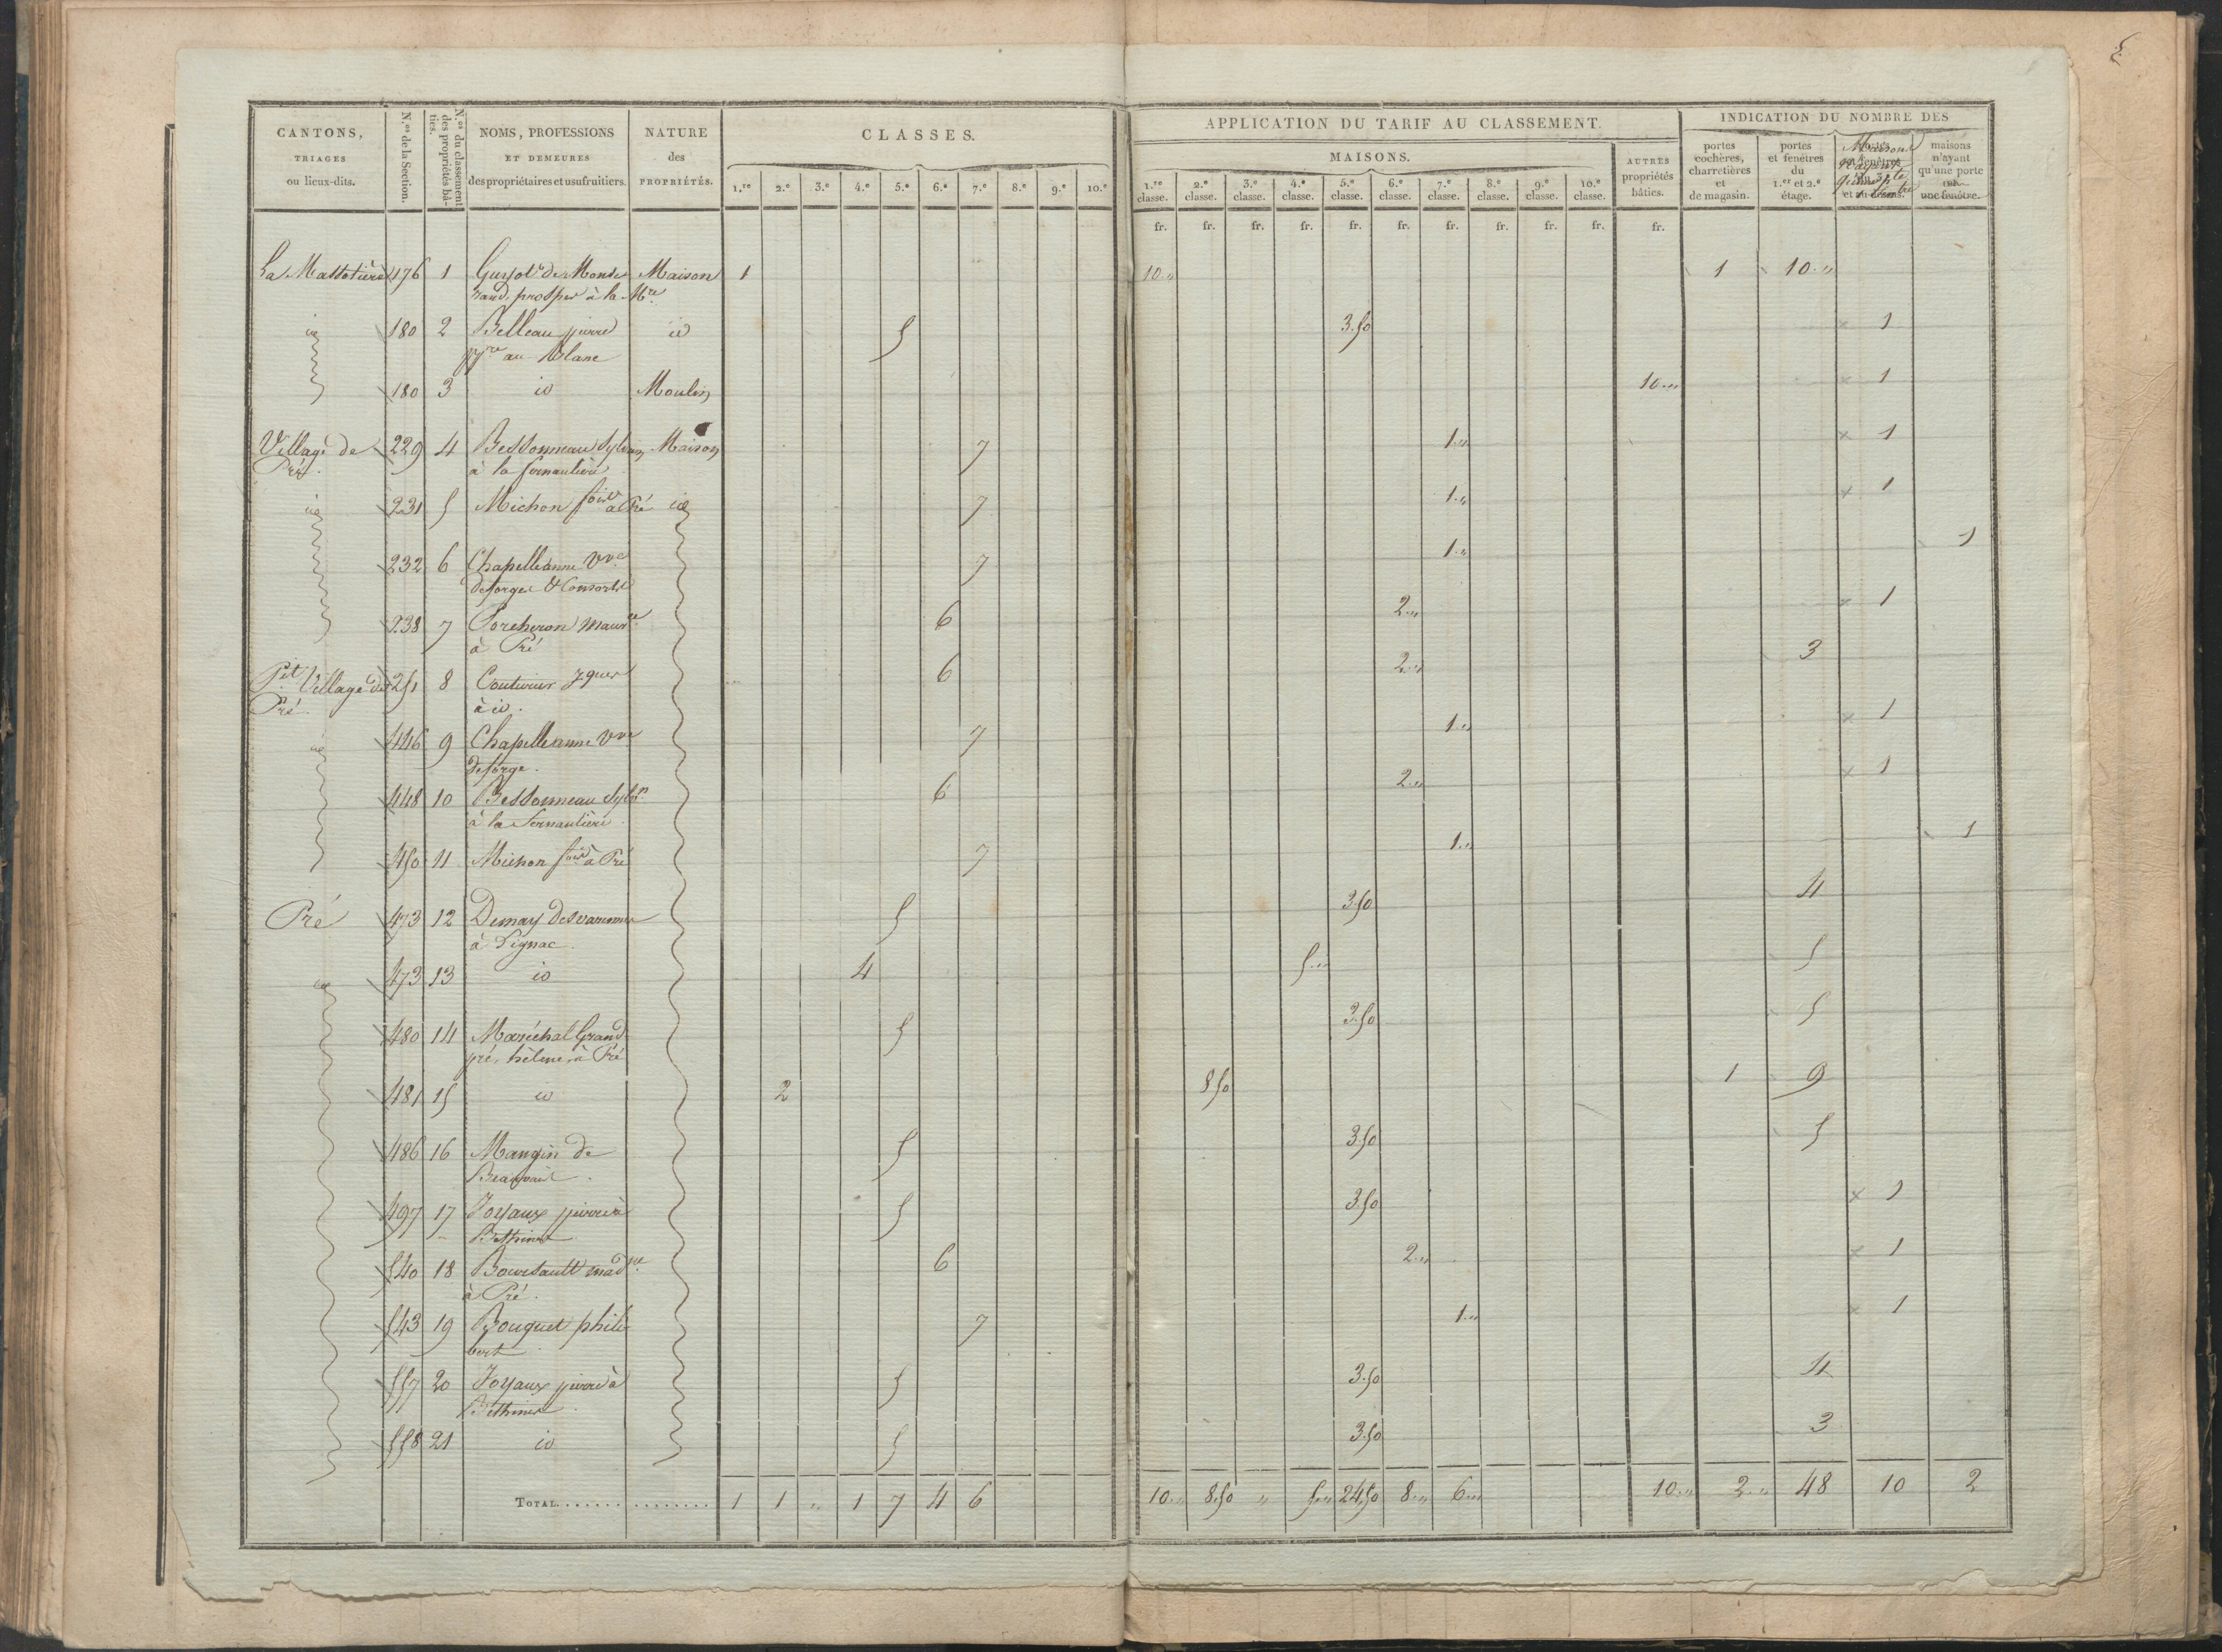 CANTONS,
TRIAGES
ou lieux-dits.
N.os de la Section.
N.os du classement des propriétés bâties.
NOMS, PROFESSIONS
ET DEMEURES
des propriétaires et usufruitiers.
NATURE
des
PROPRIÉTÉS.
CLASSES.
1.re 2.e 3.e 4.e 5.e 6.e 7.e 8.e 9.e 10.e
APPLICATION DU TARIF AU CLASSEMENT.
MAISONS.
1.re classe. 2.e classe. 3.e classe. 4.e classe. 5.e classe. 6.e classe. 7.e classe. 8.e classe. 9.e classe. 10.e classe.
AUTRES
propriétés
bâties.
INDICATION DU NOMBRE DES
portes
cochères,
charretières
et
de magasin.
portes
et fenêtres
du
1.er et 2.e
étage.
Maisons
maisons
n'ayant
qu'une porte
une fenêtre.
fr. fr. fr. fr. fr. fr. fr. fr. fr. fr. fr.
476 1 Maison 1 10 „ 1 10 „
prosper à la Mre
id 180 2 Belleau pierre id 5 3.50 1
au Blanc
180 3 id Moulin 10 „ 1
Village de 229 4 Bessonneau Sylvain Maison 7 1 „ 1
Pré. à la
id 231 5 Michon à Pré id 7 1 „ 1
232 6 Chapelle anne Vve 7 1 „ 1
Deforges & Consorts
238 7 Porcheron Maurce 6 2 „ 1
à Pré
Pit Village de 251 8 Couturier Jques 6 2 „ 3
Pré. à id.
id 446 9 Chapelle anne Vve 7 1 „ 1
Deforge.
448 10 Bessonneau Sylvn 6 2 „ 1
à la
450 11 Michon à Pré 7 1 „ 1
Pré 473 12 Demay 5 3.50 4
à
id 473 13 id 4 5 „ 5
480 14 Maréchal Grand 5 3.50 5
pré, hélene, à Pré
481 15 id 2 8.50 1 9
486 16 Mangin de 5 3.50 5
Beauvais.
497 17 Joyaux pierre à 5 3.50 1
Bethines
540 18 Boursault 6 2 „ 1
à Pré.
543 19 Bouquet phili 7 1 „ 1
bert
557 20 Joyaux pierre à 5 3.50 4
Bethines
558 21 id 5 3.50 3
TOTAL 1 1 „ 1 7 4 6 10 „ 8.50 „ 5 „ 24.50 8 „ 6 „ 10 „ 2 „ 48 10 2